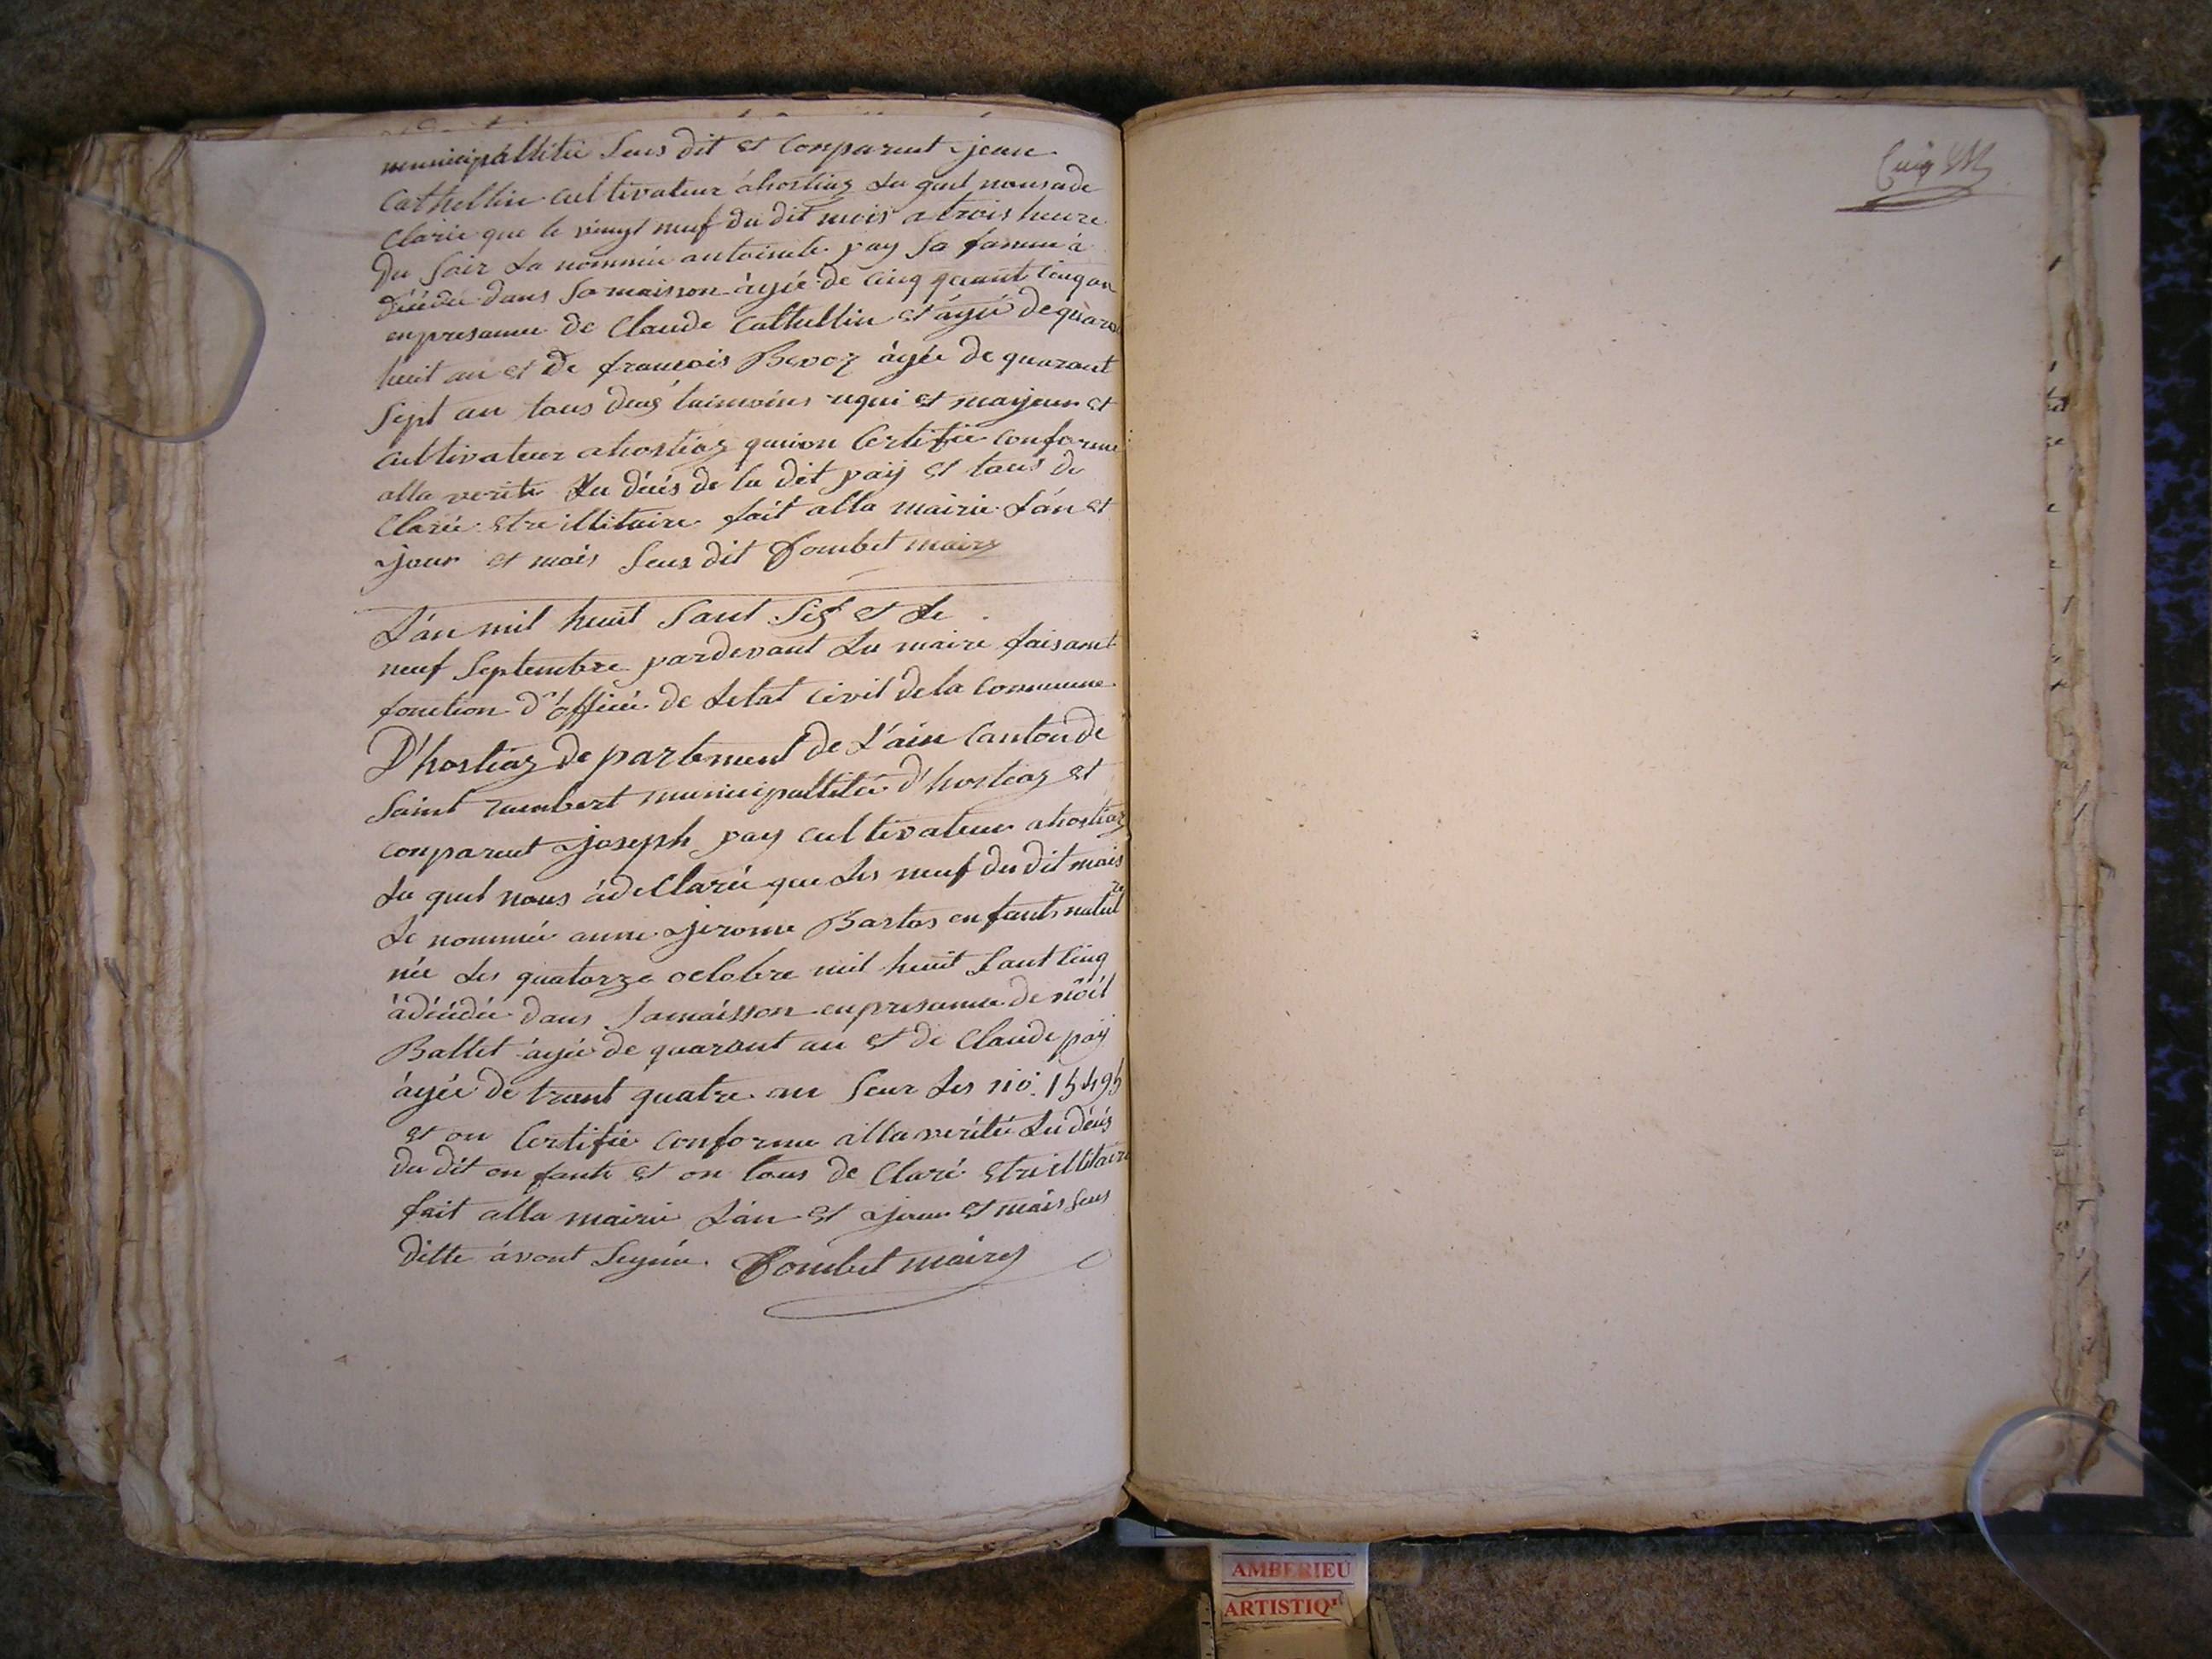 municipallitée Seus dit et Conparent jean
Cathellin cultivateur ahostiaz Lu quel nous a de
Clarée que le vingt neuf du dit mois a trois heure
Du Soir La nommée antoinete pay Sa famme à
décédée dans Sa maison àgée de Cinq quant Cinq an
enpresanne de Claude Cathellin et àgée de quaran
huit an et De francois Bevoz àgée de quarant
Sept an tous deug taimoins et mayjeur et
Cultivateur ahostiaz Certifie Conforme
alla verite Lu déces de la dit pay et tous de
Clarée etre illitaire fait alla mairie L'án et
jour et mois Seus dit Dombet maire
L'án mil huit Sant Sig et Le
neuf Septembre pardevant Lu maire faisant
fonction D'officié de Letat Civil de la Commune
D'hostiaz departement de L'ain Canton de
Saint rambert municipallitée d'hostiaz et
Conparent joseph pay cultivateur ahostiaz
Lu quel nous àde Clarée que Les neuf du dit mois
Le nommée anne jerome Bartos enfants natul re
née Les quatorze octobre mil huit Sant Cinq
àdécédée dans Samaisson enpresanne de nöél
Ballet àgée de quarant an et de Claude pay
àgée de trant quatre an Seur Les nio. 15495
et on Certifie Conforme alla veritée Lu déces
du dit enfants et on tous de Claré etre illitaire
fait alla mairie L'án et jour et mois Seus
ditte àvont Seynée. Dombet maire
AMBERIEU
ARTISTIQ